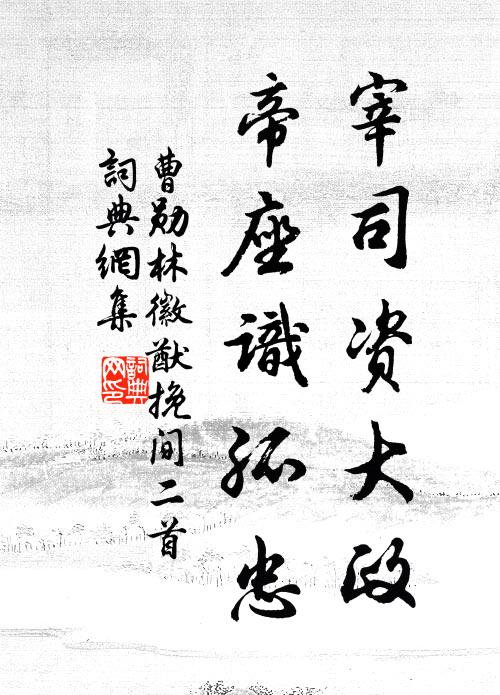 宰司资大政
帝座識孤忠
曹勋林徽猷挽间二首
詞典網集
詞典網印